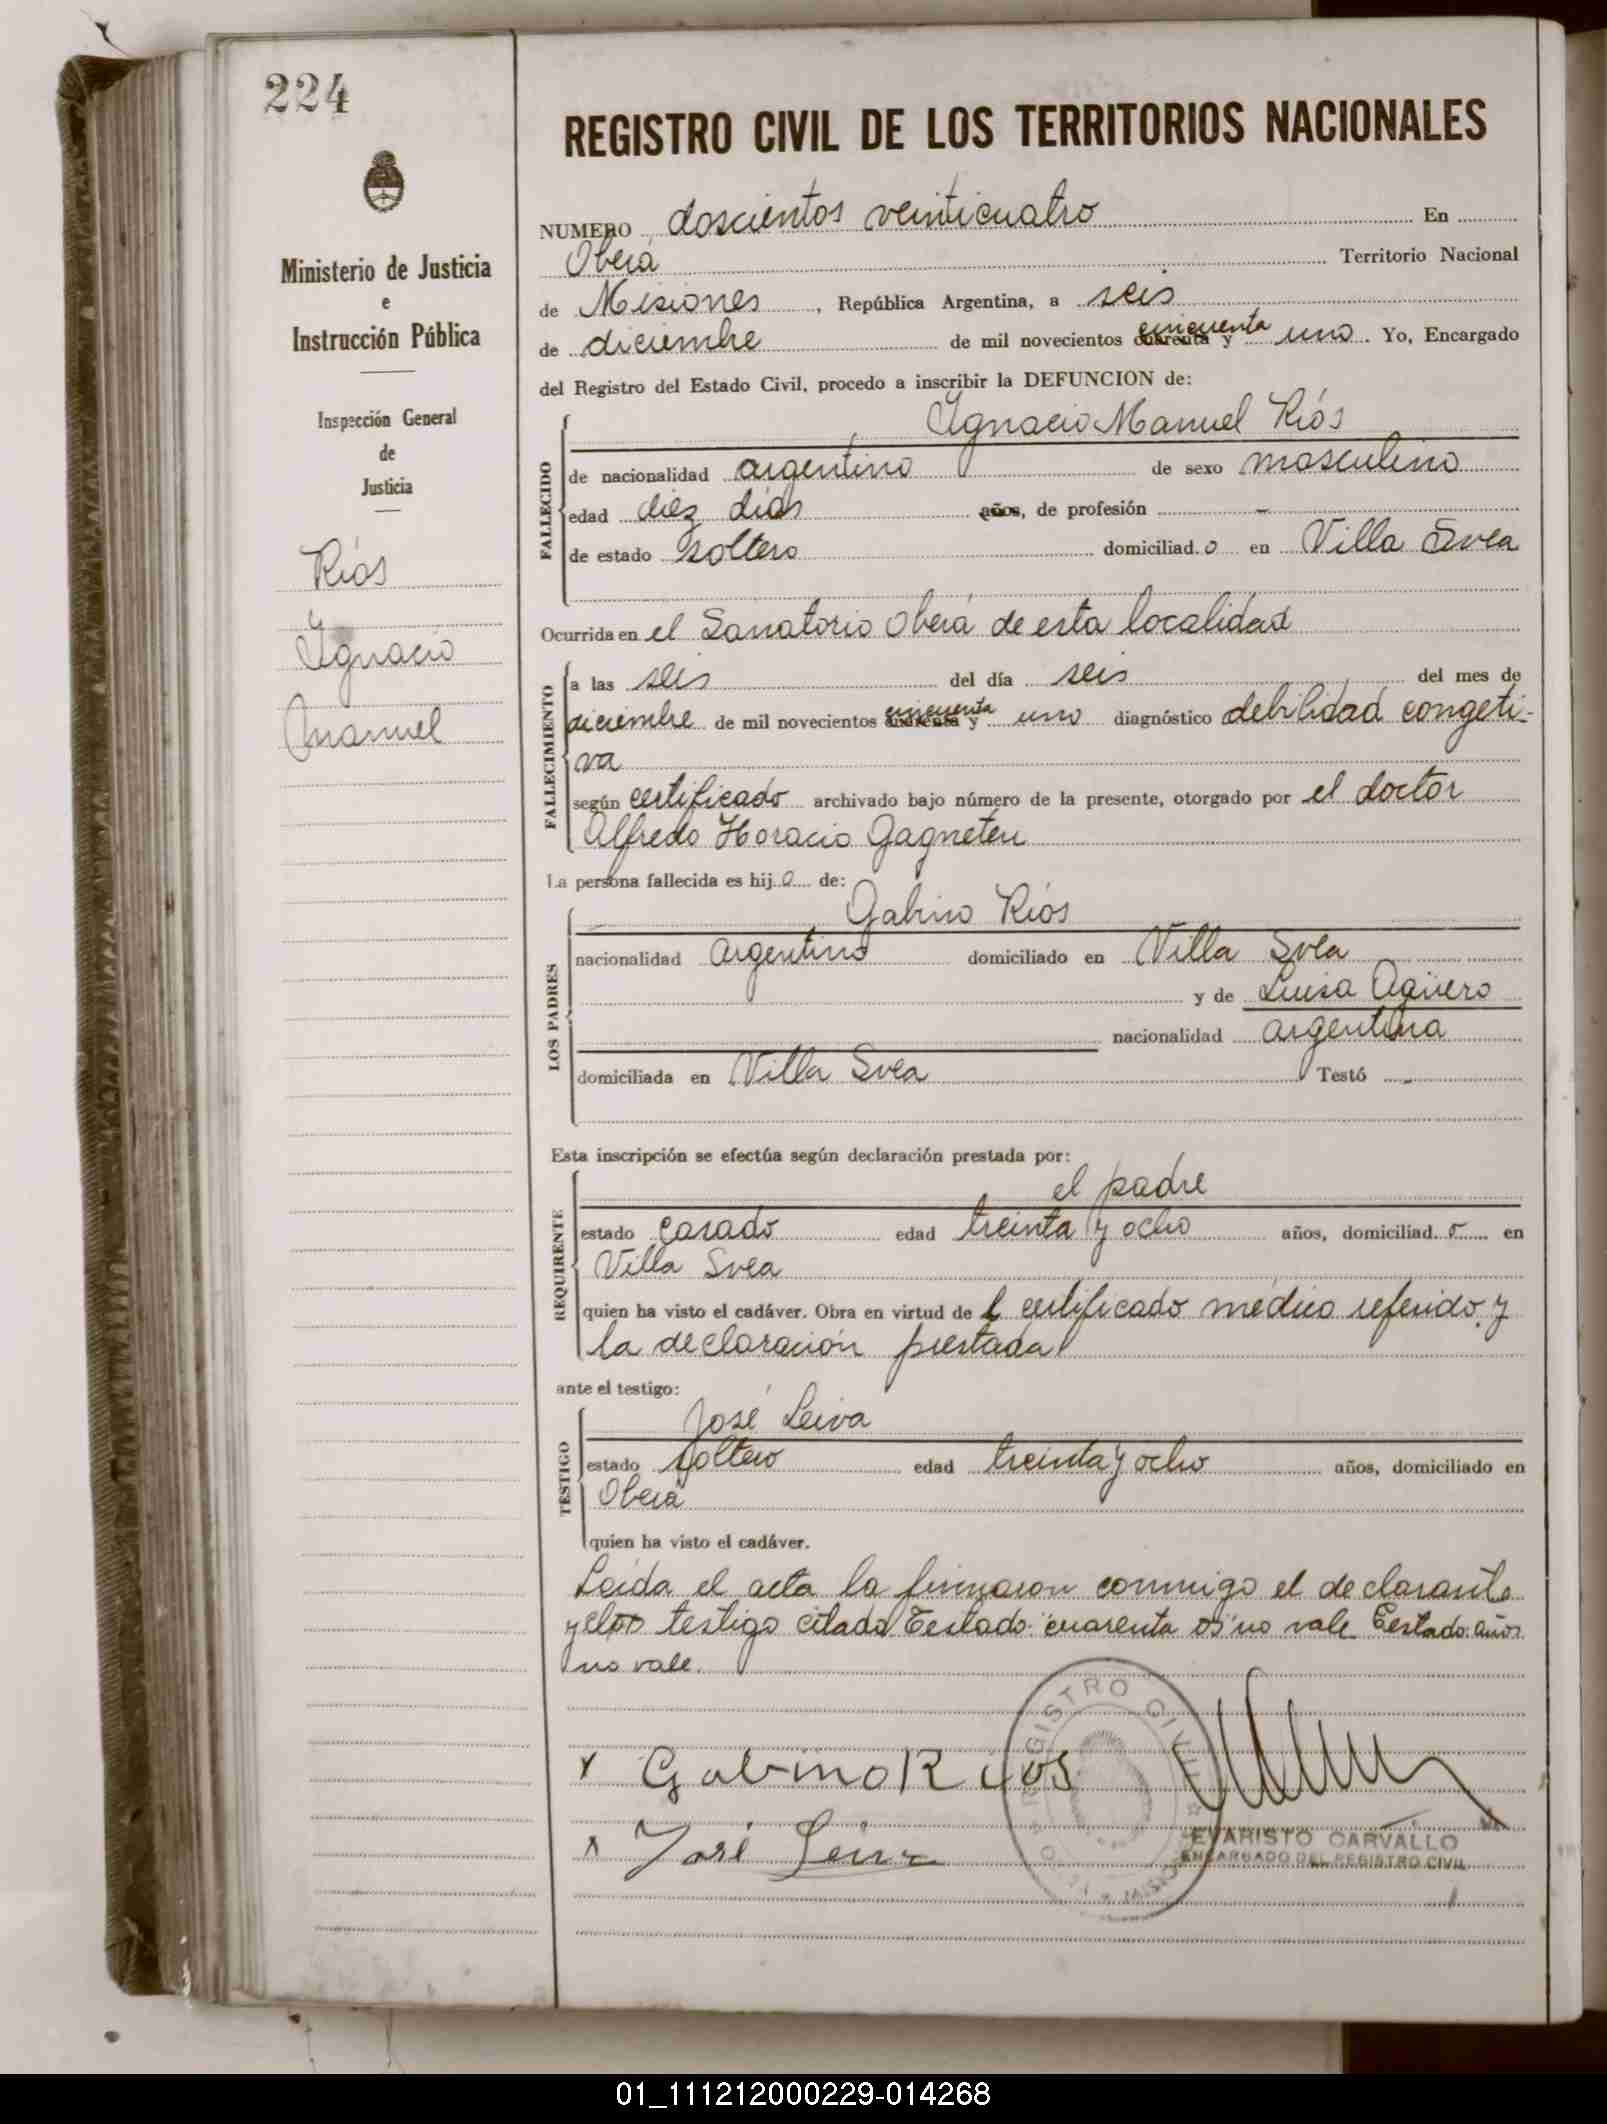 224
Ministerio de Justicia
e
Instrucción Pública
Inspección General
de
Justicia
Ríos
Ignacio
Manuel
REGISTRO CIVIL DE LOS TERRITORIOS NACIONALES
NUMERO doscientos veinticuatro En
Oberá Territorio Nacional
de Misiones, República Argentina, a seis
de diciembre de mil novecientos cincuenta cuarenta y uno. Yo, Encargado
del Registro del Estado Civil, procedo a inscribir la DEFUNCION de:
FALLECIDO
Ignacio Manuel Ríos
de nacionalidad argentino de sexo masculino
edad diez días años, de profesión -
de estado soltero domiciliad.o en Villa Svea
Ocurrida en el Sanatorio Oberá de esta localidad
FALLECIMIENTO
a las seis del día seis del mes de
diciembre de mil novecientos cincuenta cuarenta y uno diagnóstico debilidad congeti-
va
según certificado archivado bajo número de la presente, otorgado por el doctor
Alfredo Horacio Gagneten
La persona fallecida es hij.o de:
LOS PADRES
Gabino Ríos
nacionalidad argentino domiciliado en Villa Svea
y de Luisa Agüero
nacionalidad argentina
domiciliada en Villa Svea Testó -
Esta inscripción se efectúa según declaración prestada por:
REQUIRENTE
el padre
estado casado edad treinta y ocho años, domiciliad.o en
Villa Svea
quien ha visto el cadáver. Obra en virtud de l certificado médico referido y
la declaración prestada
ante el testigo:
TESTIGO
José Leiva
estado soltero edad treinta y ocho años, domiciliado en
Oberá
quien ha visto el cadáver.
Leída el acta la firmaron conmigo el declarante
y el testigo citado Testado: "cuarenta os" no vale Testado: años
no vale.
x Gabino Ríos
x José Leiva
REGISTRO CIVIL
EVARISTO CARVALLO
ENCARGADO DEL REGISTRO CIVIL
01_111212000229-014268